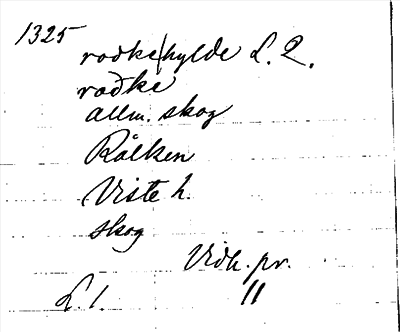 1325
rodke|hylde L. 2.
rodke
allm. skog
Rålken
Viste h.
skog
Vidh. pr.
L. 1. "